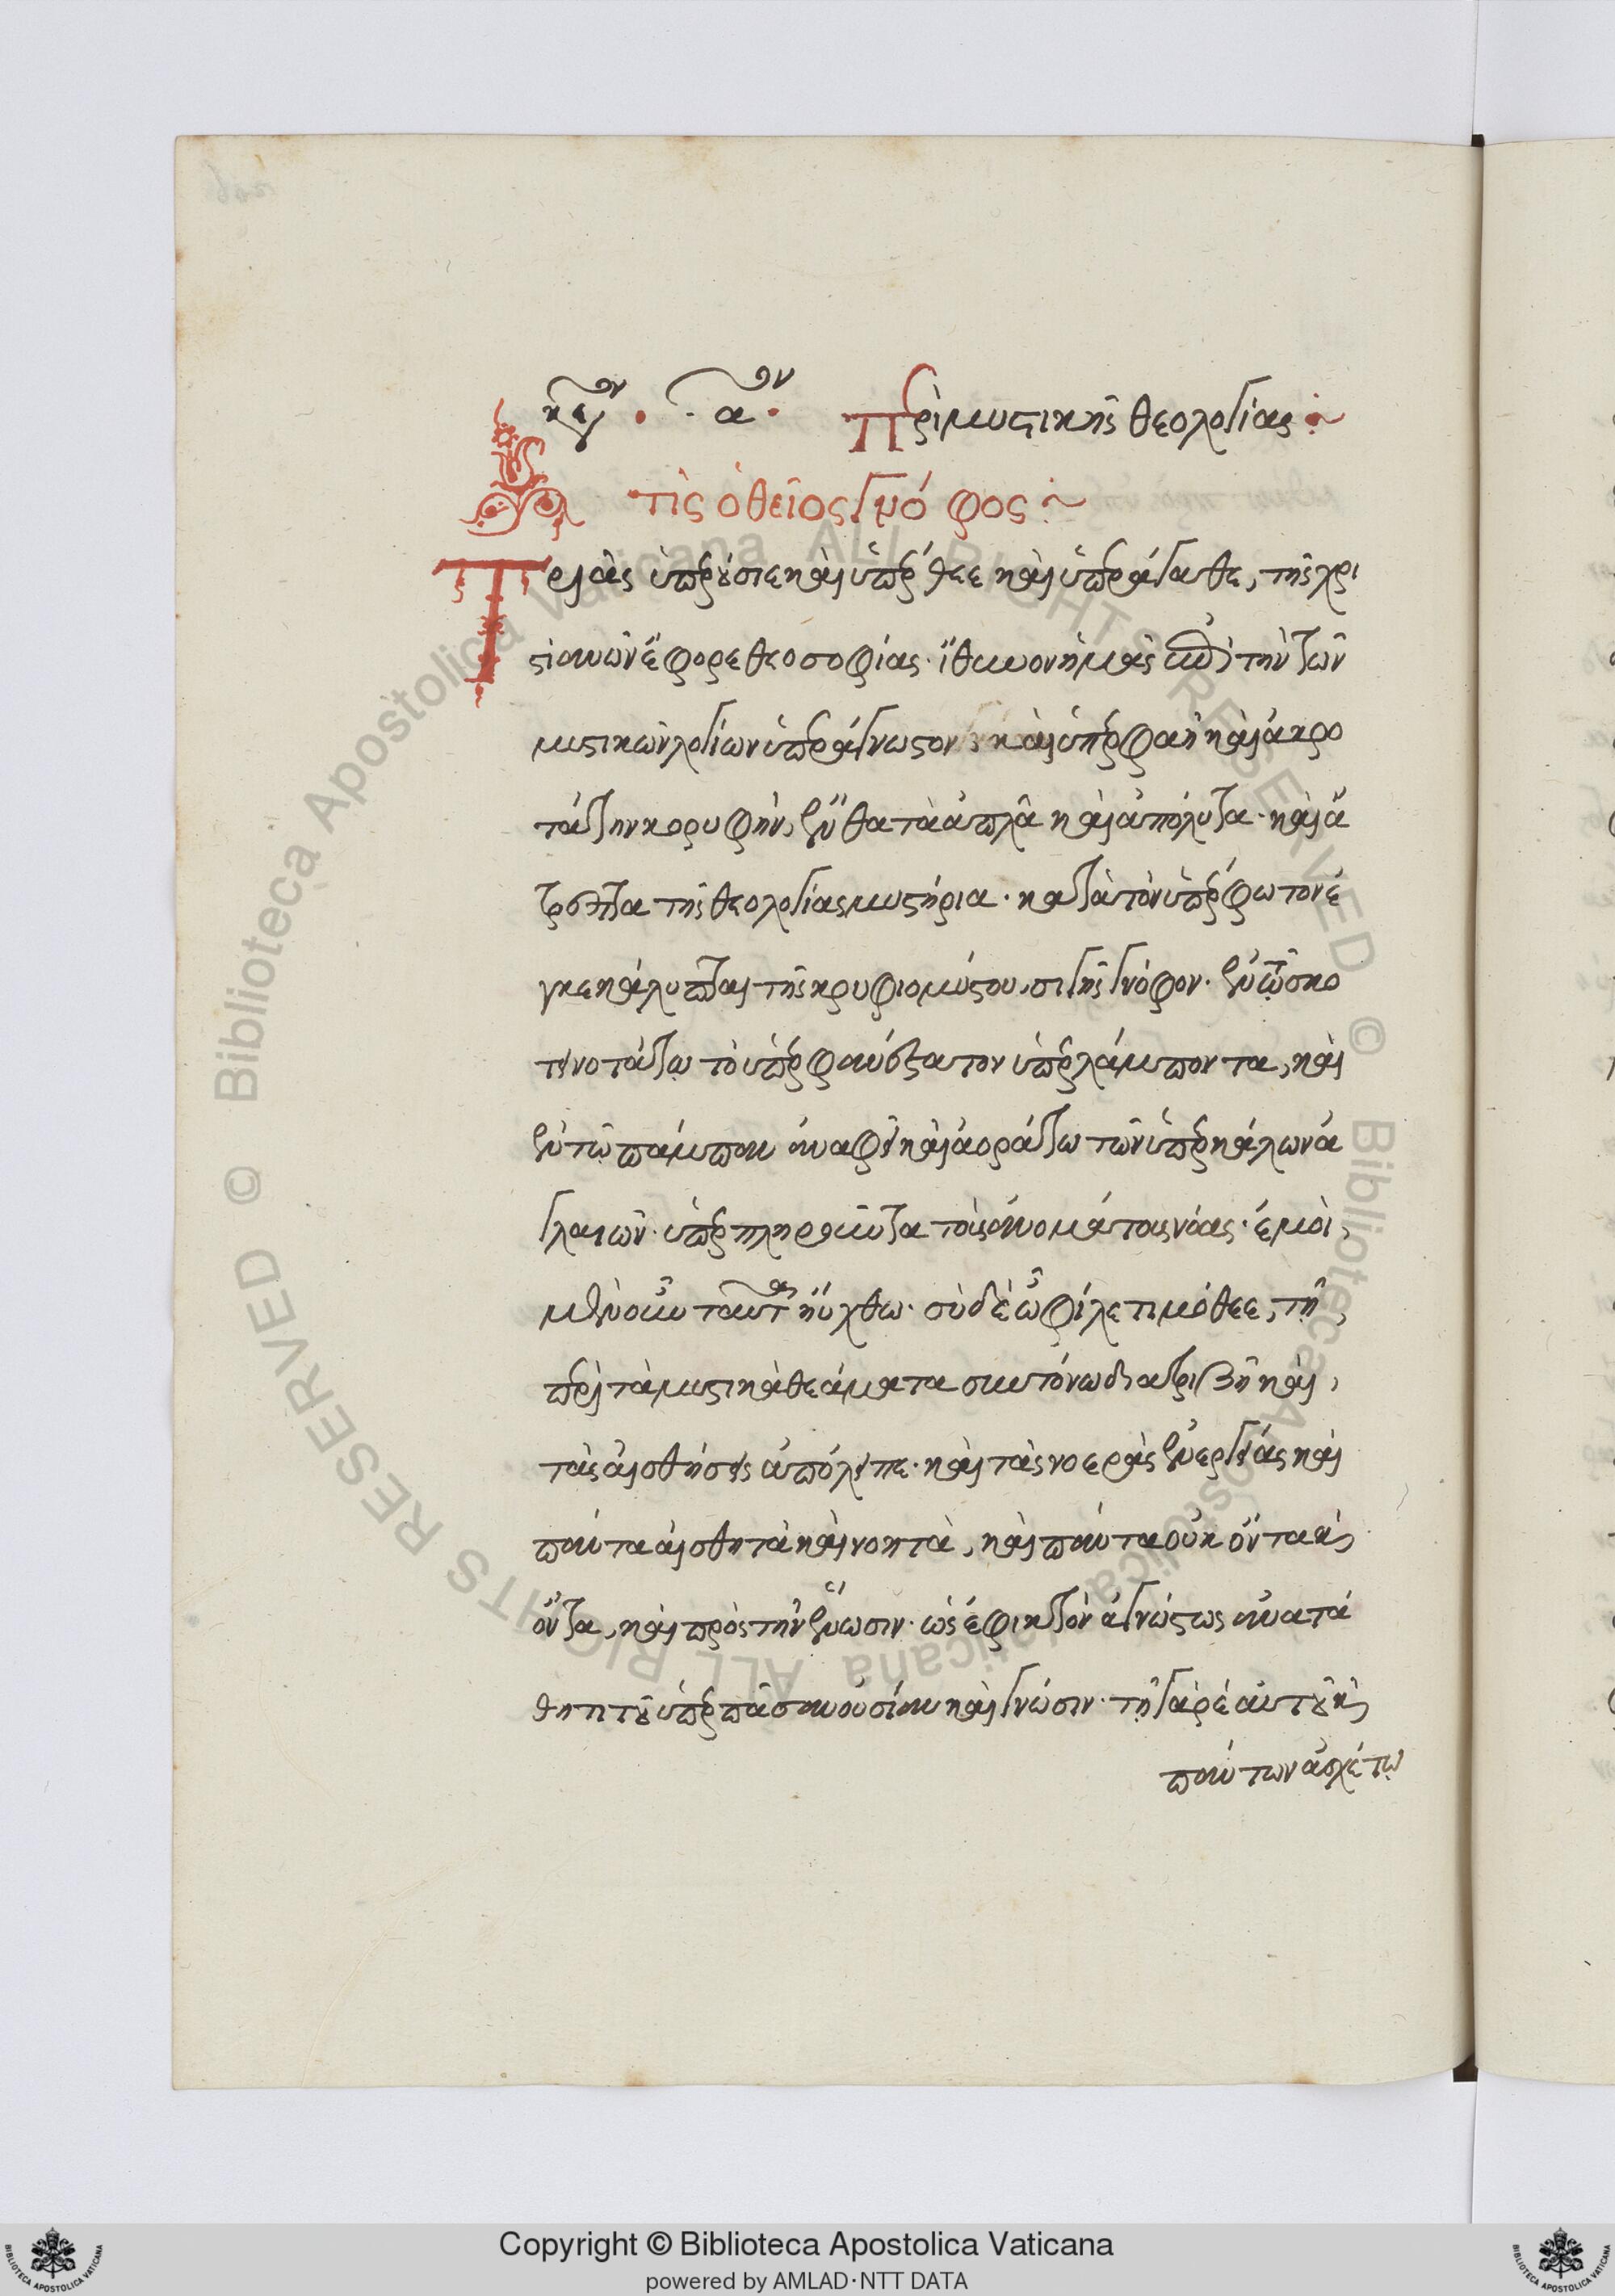 κεφον · α΄ον · Περὶ μυστικῆς θεολογίας :~
τίς ὁ θεῖος γνόφος :~
Τριὰς ὑπερούσιε καὶ ὑπέρθεε καὶ ὑπεράγαθε, τῆς χρι
στιανῶν ἔφορε θεοσοφίας· ἴθυνον ἡμᾶς ἐπὶ τὴν τῶν
μυστικῶν λογίων ὑπεράγνωστον καὶ ὑπερφαῆ καὶ ἀκρο
τάτην κορυφήν, ἔνθα τὰ ἁπλᾶ καὶ ἀπόλυτα· καὶ ἄ
τρεπτα τῆς θεολογίας μυστήρια· κατὰ τὸν ὑπέρφωτον ἐ
γκεκάλυπται τῆς κρυφιομύστου, σιγῆς γνόφον· ἐν τῷ σκο
τεινοτάτῳ τὸ ὑπερφανέστατον ὑπερλάμποντα, καὶ
ἐν τῷ πάμπαν ἀναφεῖ καὶ ἀοράτω τῶν ὑπερκάλων ἀ
γλαιῶν· ὑπερπληροῦντα τοὺς ἀνομάτους νόας· ἐμοὶ,
μὲν οὖν ταῦτα ηὔχθω· σὺ δὲ ὦ φίλε τιμόθεε, τῇ,
περὶ τὰ μυστικὰ θεάματα συντόνω διατριβῆ καὶ,
τὰς αἰσθήσεις ἀπόλειπε· καὶ τὰς νοερὰς ἐνεργείας καὶ
πάντα αἰσθητὰ καὶ νοητὰ, καὶ πάντα οὐκ ὄντα καὶ
ὄντα, καὶ πρὸς τὴν ἕνωσιν· ὡς ἐφικτὸν ἀγνώστως ἀνατά
θητι τοῦ ὑπὲρ πᾶσαν οὐσίαν καὶ γνώσιν· τῇ γὰρ ἑαυτοῦ καὶ
πάντων ἀσχέτῳ
Copyright © Biblioteca Apostolica Vaticana
powered by AMLAD·NTT DATA
© Biblioteca Apostolica Vaticana ALL RIGHTS RESERVED © Biblioteca Apostolica Vaticana ALL RIGHTS RESERVED